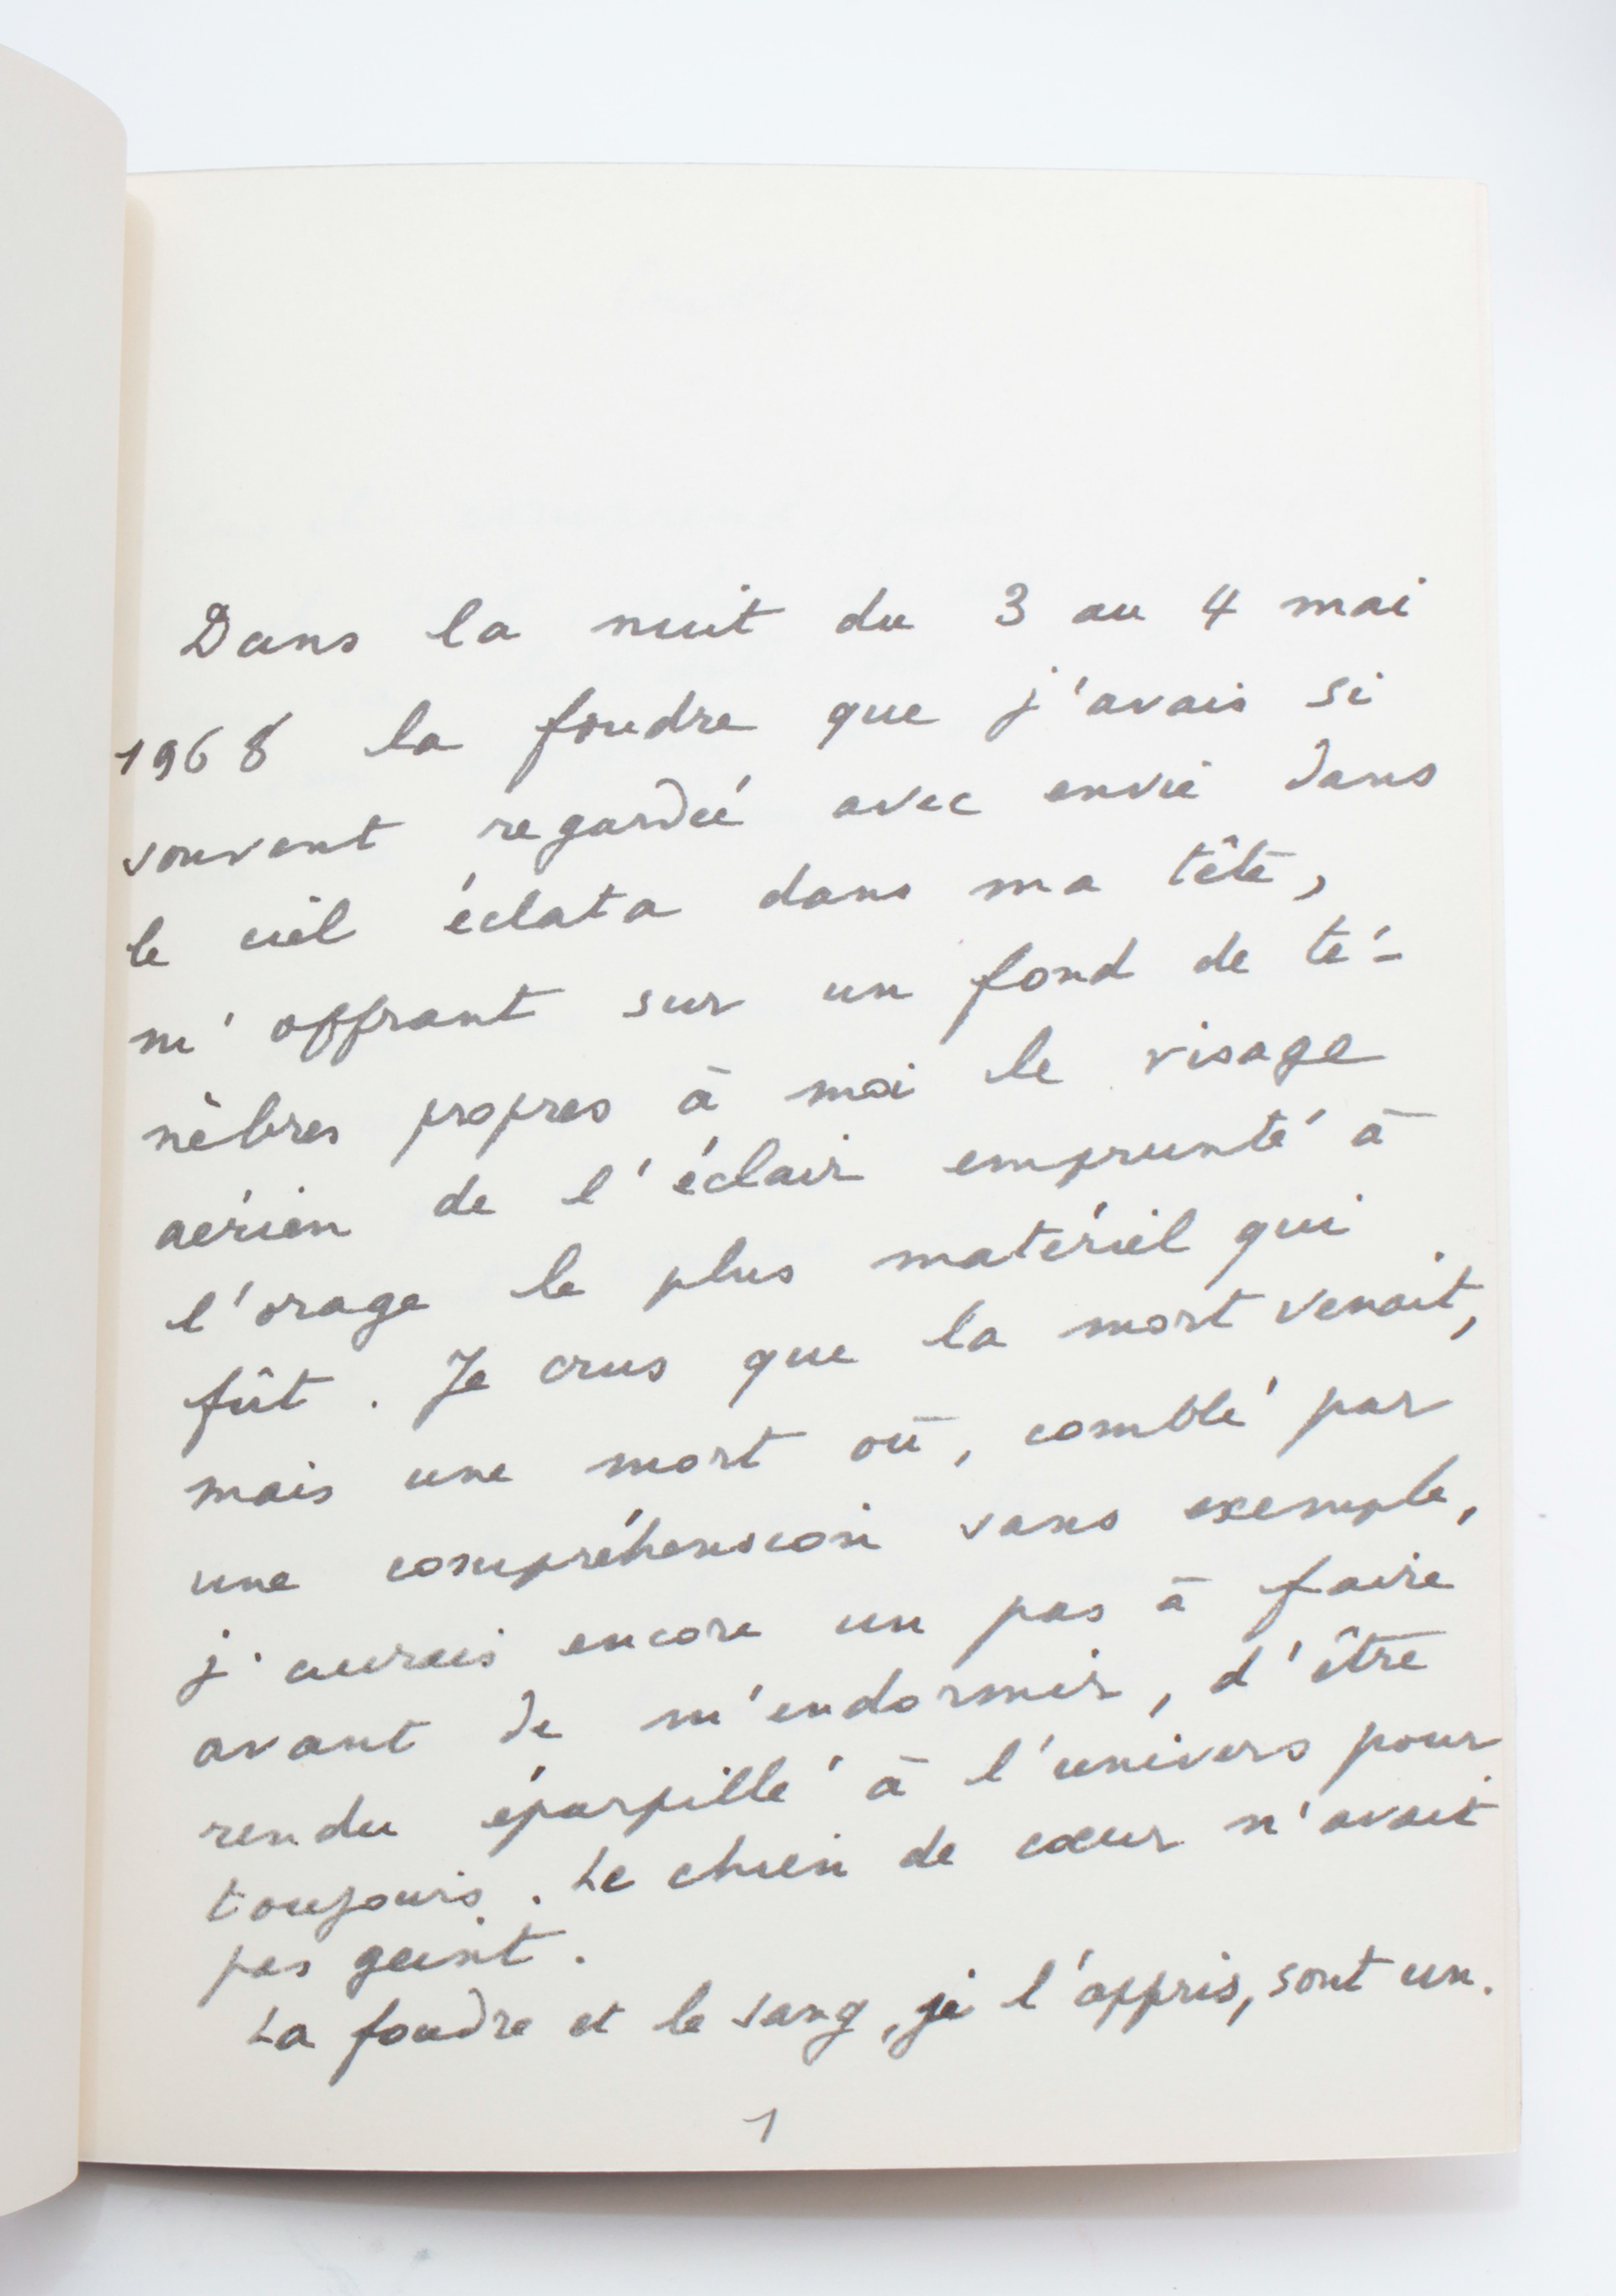 Dans la nuit du 3 au 4 mai
1968 la foudre que j'avais si
souvent regardée avec envie dans
le ciel éclata dans ma tête,
m'offrant sur un fond de té-
nèbres propres à moi le visage
aérien de l'éclair emprunté à
l'orage le plus matériel qui
fût. Je crus que la mort venait,
mais une mort où, comblé par
une compréhension sans exemple,
j'aurais encore un pas à faire
avant de m'endormir, d'être
rendu éparpillé à l'univers pour
toujours. Le chien de cœur n'avait
pas geint.
La foudre et le sang, je l'appris, sont un.
1